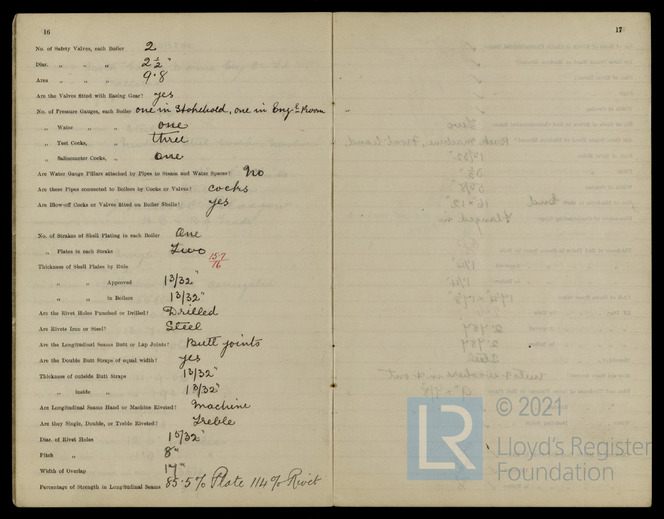 16
No. of Safety Valves, each Boiler 2
Diar. „ „ „ 2½"
Area „ „ „ 9·8
Are the Valves fitted with Easing Gear? yes
No. of Pressure Gauges, each Boiler one in Stokehold, one in Eng. Room
„ Water „ „ one
„ Test Cocks, „ three
„ Salinometer Cocks, „ one
Are Water Gauge Pillars attached by Pipes to Steam and Water Spaces? No
Are these Pipes connected to Boilers by Cocks or Valves? cocks
Are Blow-off Cocks or Valves fitted on Boiler Shells? yes
No. of Strakes of Shell Plating in each Boiler One
„ Plates in each Strake Two
Thickness of Shell Plates by Rule 15·7/16
„ „ Approved 13/32"
„ „ in Boilers 13/32"
Are the Rivet Holes Punched or Drilled? Drilled
Are Rivets Iron or Steel? Steel
Are the Longitudinal Seams Butt or Lap Joints? Butt joints
Are the Double Butt Straps of equal width? yes
Thickness of outside Butt Straps 13/32"
„ inside „ 13/32"
Are Longitudinal Seams Hand or Machine Riveted? Machine
Are they Single, Double, or Treble Riveted? Treble
Diar. of Rivet Holes 15/32"
Pitch „ 8"
Width of Overlap 17"
Percentage of Strength in Longitudinal Seams 85·5% Plate 114% Rivet
17
© 2021
LR
Lloyd's Register
Foundation